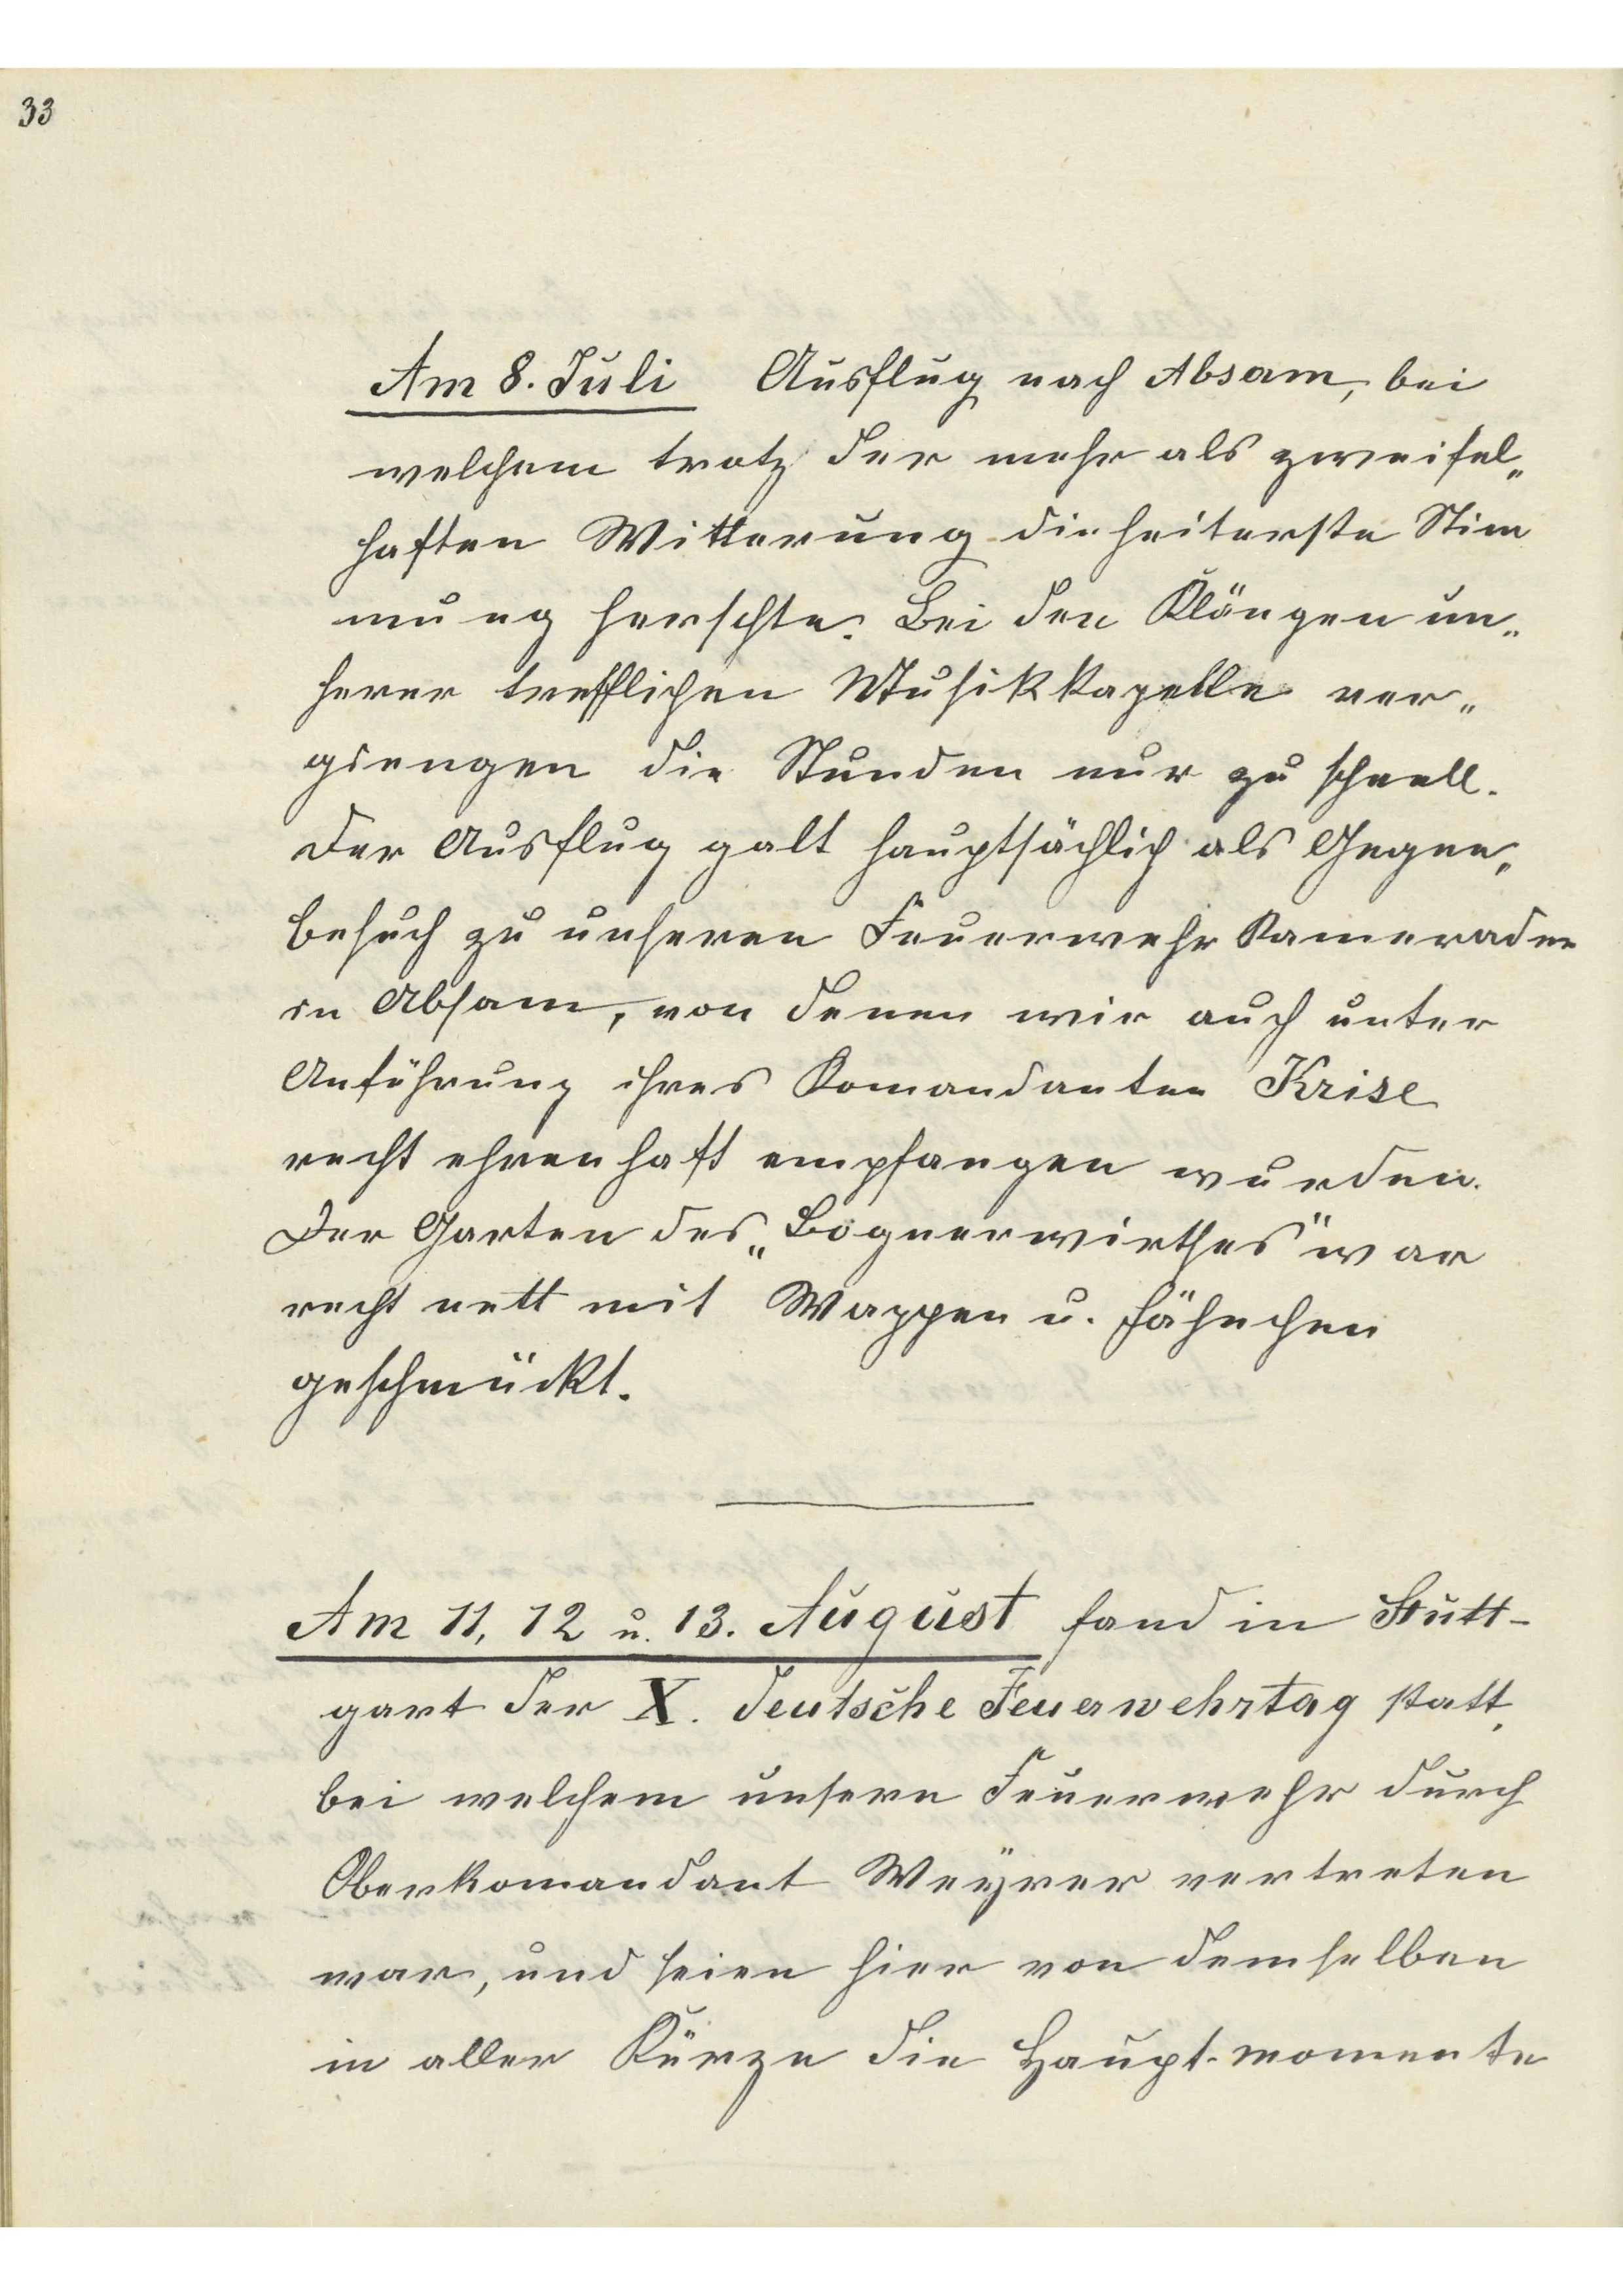 33
Am 8. Juli Ausflug nach Absam, bei
welchem trotz der mehr als zweifel„
haften Witterung die heiterste Stim
mung herschte. Bei den Klängen un„
serer trefflichen Musikkapelle ver„
giengen die Stunden nur zu schnell.
Der Ausflug galt hauptsächlich als Gegen„
besuch zu unseren Feuerwehr Kameraden
in Absam, von denen wir auch unter
Anführung ihres Komandanten Krise
recht ehrenhaft empfangen wurden.
Der Garten des „Bognerwirthes" war
recht nett mit Wappen u. Fähnchen
geschmückt.
Am 11, 12 u. 13. August fand in Stutt-
gart der X. deutsche Feuerwehrtag statt,
bei welchem unsere Feuerwehr durch
Oberkomandant Weÿrer vertreten
war, und seien hier von demselben
in aller Kürze die Haupt-momente